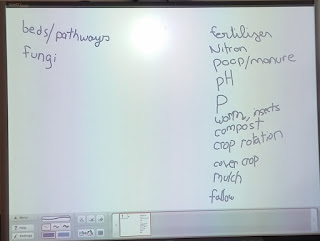 beds/pathways
fungi
fertilizer
Nitron
poop/manure
pH
P
worms, insects
compost
crop rotation
cover crop
mulch
fallow